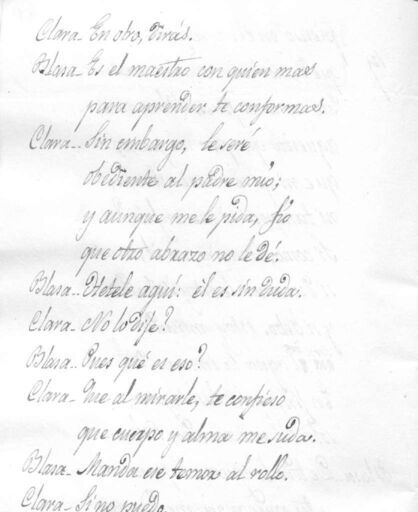 Clara- En otro, dirás.
Blasa- Es el maestro con quien mas
para aprender te conformas.
Clara- Sin embargo, le seré
obediente al padre mío;
y aunque me le pida, fío
que otro abrazo no le dé.
Blasa- Hétele aquí: él es sin duda.
Clara- No lo dije?
Blasa- Pues qué es eso?
Clara- Que al mirarle, te confieso
que cuerpo y alma me suda.
Blasa- Manda ese temor al rollo.
Clara- Si no puedo.